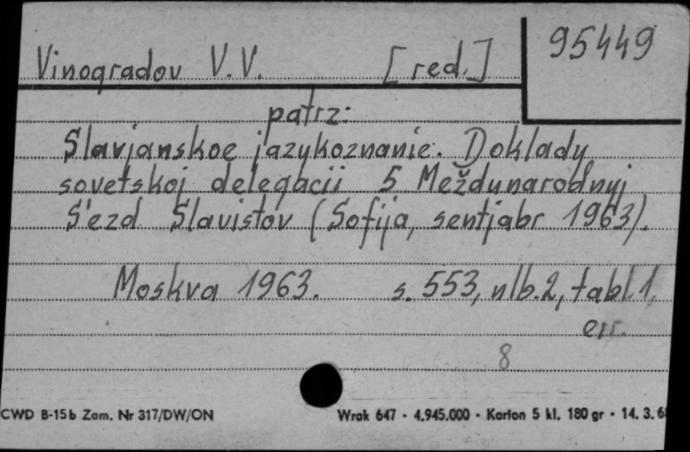 95449
Vinogradov V.V. [red.]
patrz:
Slavjanskoe jazykoznanie. Doklady
sovetskoj delegacii 5 Meždunarodnyj
S'ezd Slavistov (Sofija, sentjabr 1963).
Moskva 1963. s. 553, nlb. 2, tabl. 1,
err.
8
CWD B-15b Zam. Nr 317/DW/ON Wrak 647 - 4.945.000 - Karton 5 kl. 180 gr - 14. 3. 6